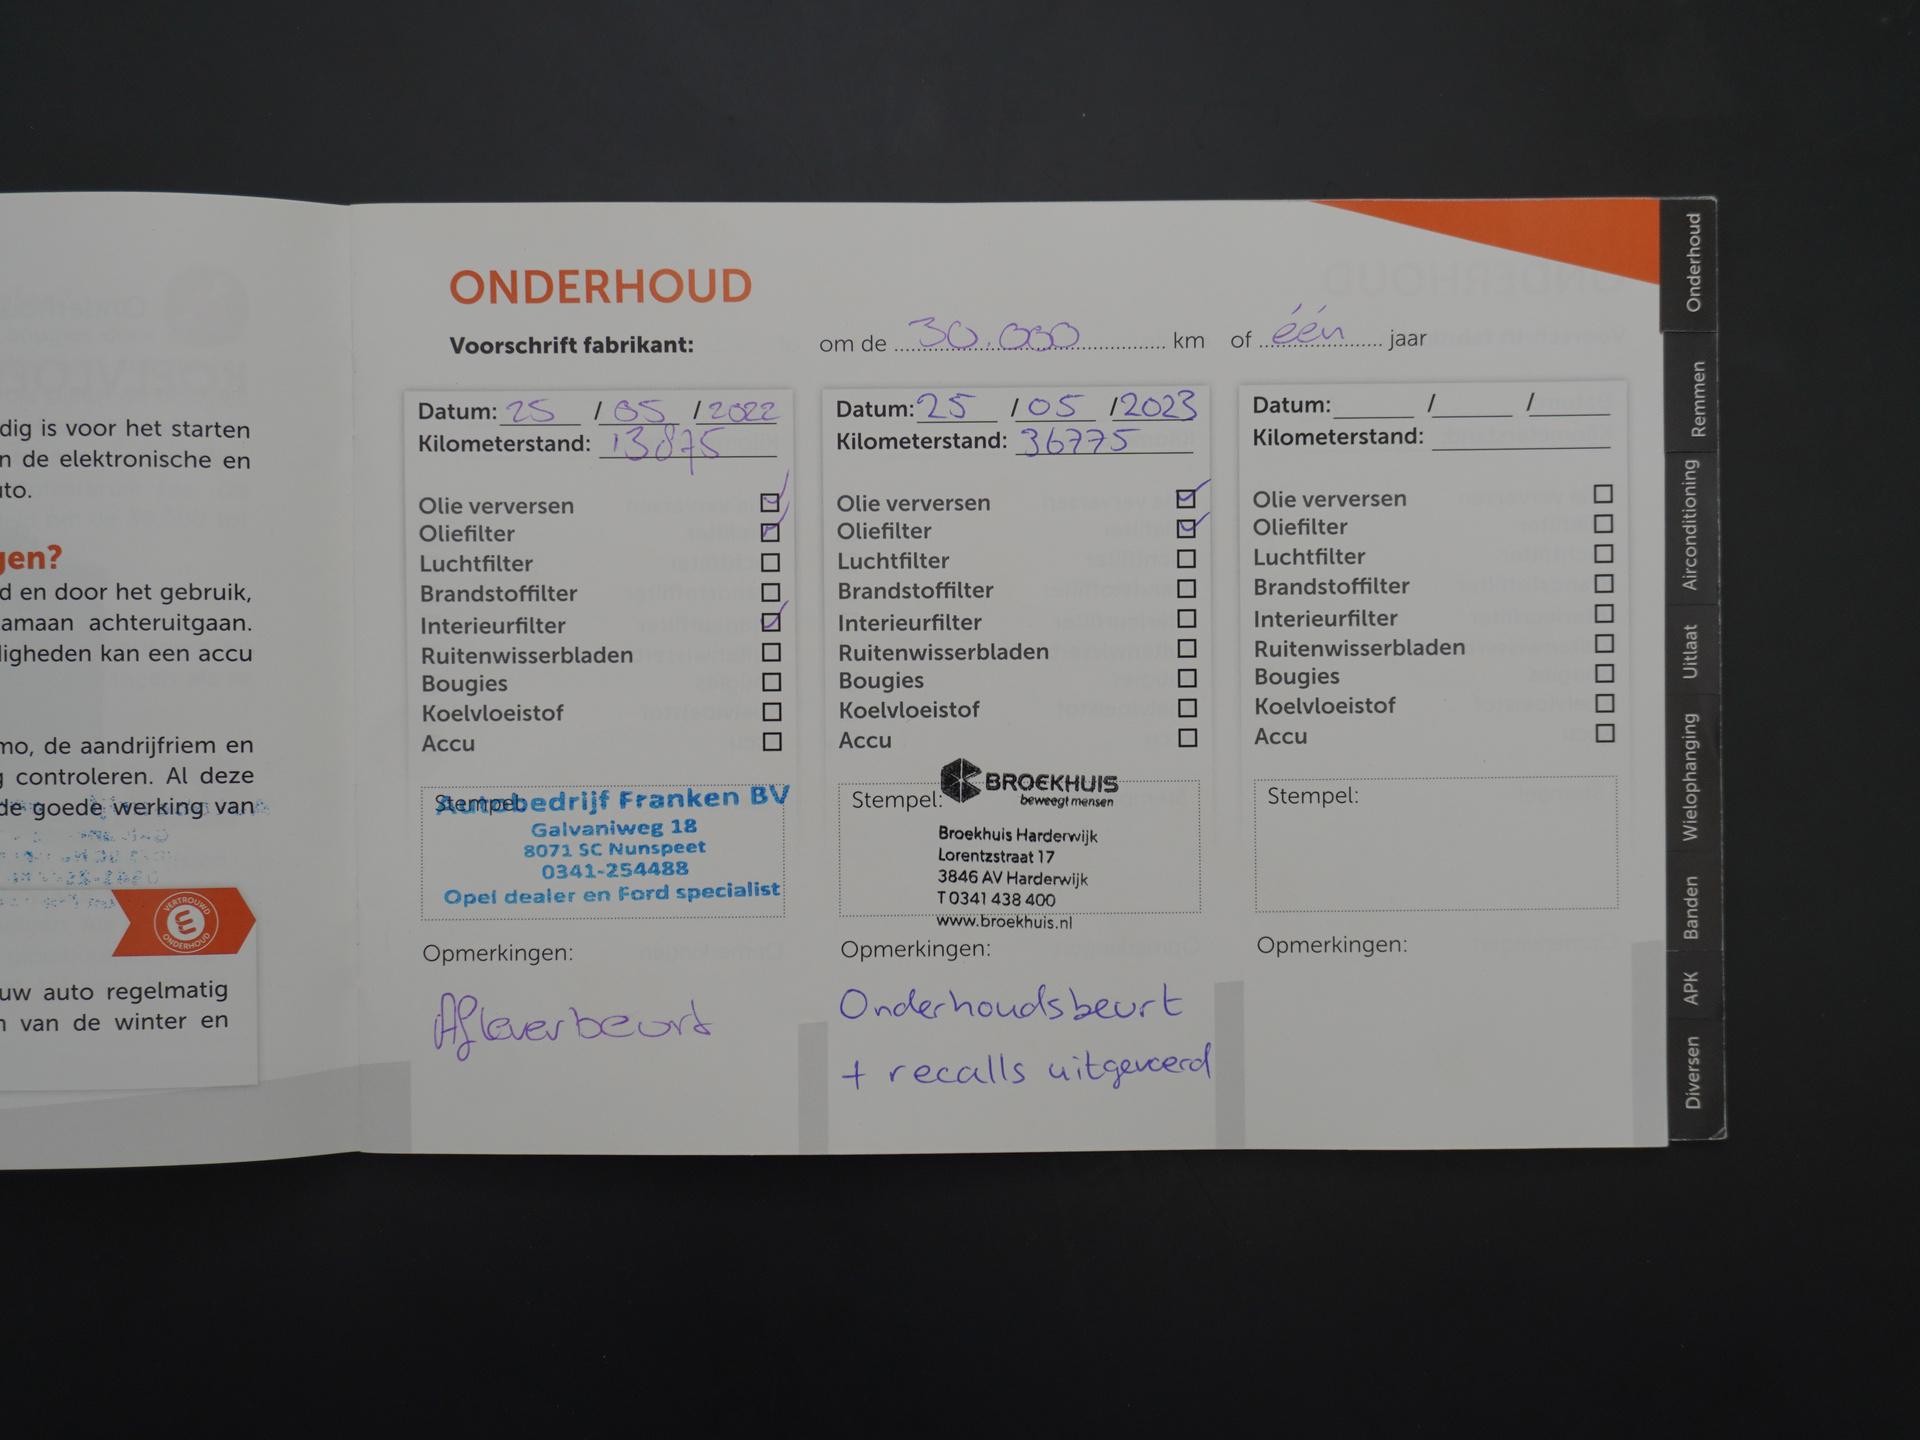 dig is voor het starten
n de elektronische en
uto.
gen?
d en door het gebruik,
amaan achteruitgaan.
ligheden kan een accu
mo, de aandrijfriem en
g controleren. Al deze
de goede werking van
VERTROUWD
ONDERHOUD
uw auto regelmatig
n van de winter en
ONDERHOUD
Voorschrift fabrikant: om de 30.000 km of één jaar
Datum: 25 / 05 / 2022
Kilometerstand: 13875
Olie verversen
Oliefilter
Luchtfilter
Brandstoffilter
Interieurfilter
Ruitenwisserbladen
Bougies
Koelvloeistof
Accu
Stempel:
Autobedrijf Franken BV
Galvaniweg 18
8071 SC Nunspeet
0341-254488
Opel dealer en Ford specialist
Opmerkingen:
Afleverbeurt
Datum: 25 / 05 / 2023
Kilometerstand: 36775
Olie verversen
Oliefilter
Luchtfilter
Brandstoffilter
Interieurfilter
Ruitenwisserbladen
Bougies
Koelvloeistof
Accu
Stempel:
BROEKHUIS
beweegt mensen
Broekhuis Harderwijk
Lorentzstraat 17
3846 AV Harderwijk
T 0341 438 400
www.broekhuis.nl
Opmerkingen:
Onderhoudsbeurt
+ recalls uitgevoerd
Datum: / /
Kilometerstand:
Olie verversen
Oliefilter
Luchtfilter
Brandstoffilter
Interieurfilter
Ruitenwisserbladen
Bougies
Koelvloeistof
Accu
Stempel:
Opmerkingen:
Onderhoud
Remmen
Airconditioning
Uitlaat
Wielophanging
Banden
APK
Diversen